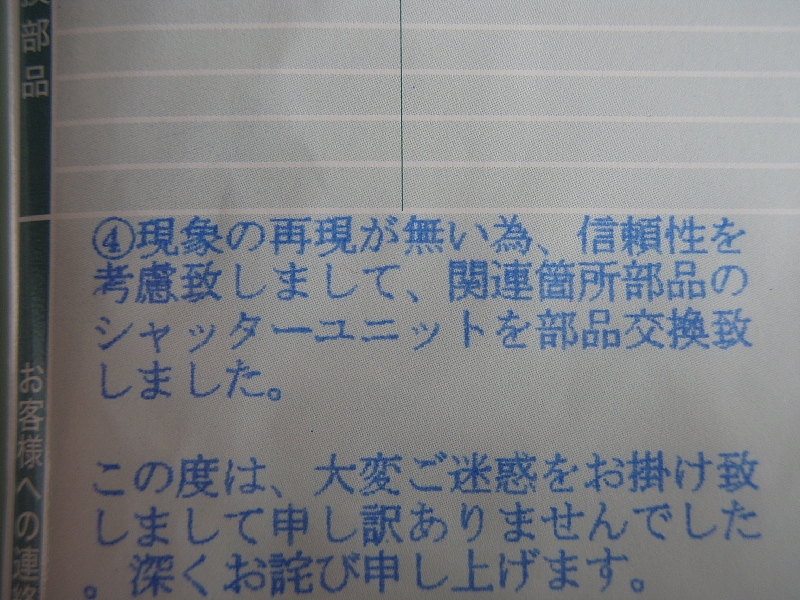 部品
④現象の再現が無い為、信頼性を
考慮致しまして、関連箇所部品の
シャッターユニットを部品交換致
しました。
お客様への連絡
この度は、大変ご迷惑をお掛け致
しまして申し訳ありませんでした
。深くお詫び申し上げます。